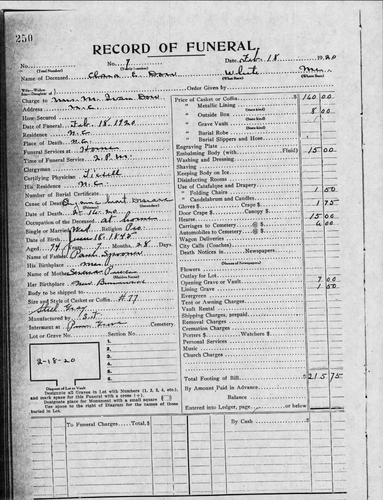 250
RECORD OF FUNERAL
No. No. 7 Date Feb. 18 1920
(Total Number) (Yearly Number)
Name of Deceased Clara E. Dow White Me.
(What Race) (Where Born)
Order Given by
Charge to Mrs. M. Dow
Address N.C.
How Secured
Date of Funeral Feb. 18. 1920
Residence N.C.
Place of Death N.C.
Funeral Services at Home
Time of Funeral Service 2 P.M.
Clergyman
Certifying Physician
His Residence N.C.
Number of Burial Certificate
Cause of Death Organic Heart Disease
Date of Death 2-16-20
Occupation of the Deceased at home
Single or Married Wid. Religion
Date of Birth June 18. 1845
Aged 74 Years 7 Months 28 Days
Name of Father Spooner
His Birthplace Me.
Name of Mother
(Maiden Name)
Her Birthplace New Brunswick
Body to be shipped to
Size and Style of Casket or Coffin #77
Steel Gray
Manufactured by
Interment at Pine Grove Cemetery
Lot or Grave No. Section No.
1
2
3
4
5
6
2-18-20
Diagram of Lot or Vault
Designate all Graves in Lot with Numbers (1, 2, 3, 4, etc.),
and mark space for this Funeral with a cross (+)
Designate place for Monument with a small square
Use space to the right of Diagram for the names of those
buried in Lot.
Price of Casket or Coffin $ 160 00
" Metallic Lining
" Outside Box 8 00
" Grave Vault
" Burial Robe
" Burial Slippers and Hose
Engraving Plate
Embalming Body (with Fluid) 15 00
Washing and Dressing
Shaving
Keeping Body on Ice
Disinfecting Rooms
Use of Catafalque and Drapery
" Folding Chairs 1 50
" Candelabrum and Candles
Gloves $ Door Crape $ 1 75
Hearse 15 00
Carriages to Cemetery @ $ 6 00
Automobiles to Cemetery @ $
Wagon Deliveries
City Calls (Coaches)
Death Notices in Newspapers
Flowers
Outlay for Lot
Opening Grave or Vault 7 00
Lining Grave 1 50
Evergreen
Tent or Awning Charges
Vault Rental
Shipping Charges, prepaid
Removal Charges
Cremation Charges
Porters $ Watchers $
Personal Services
Music
Church Charges
Total Footing of Bill $ 215 75
By Amount Paid in Advance
Balance
Entered into Ledger, page or below
To Funeral Charges Total, $
By Cash $